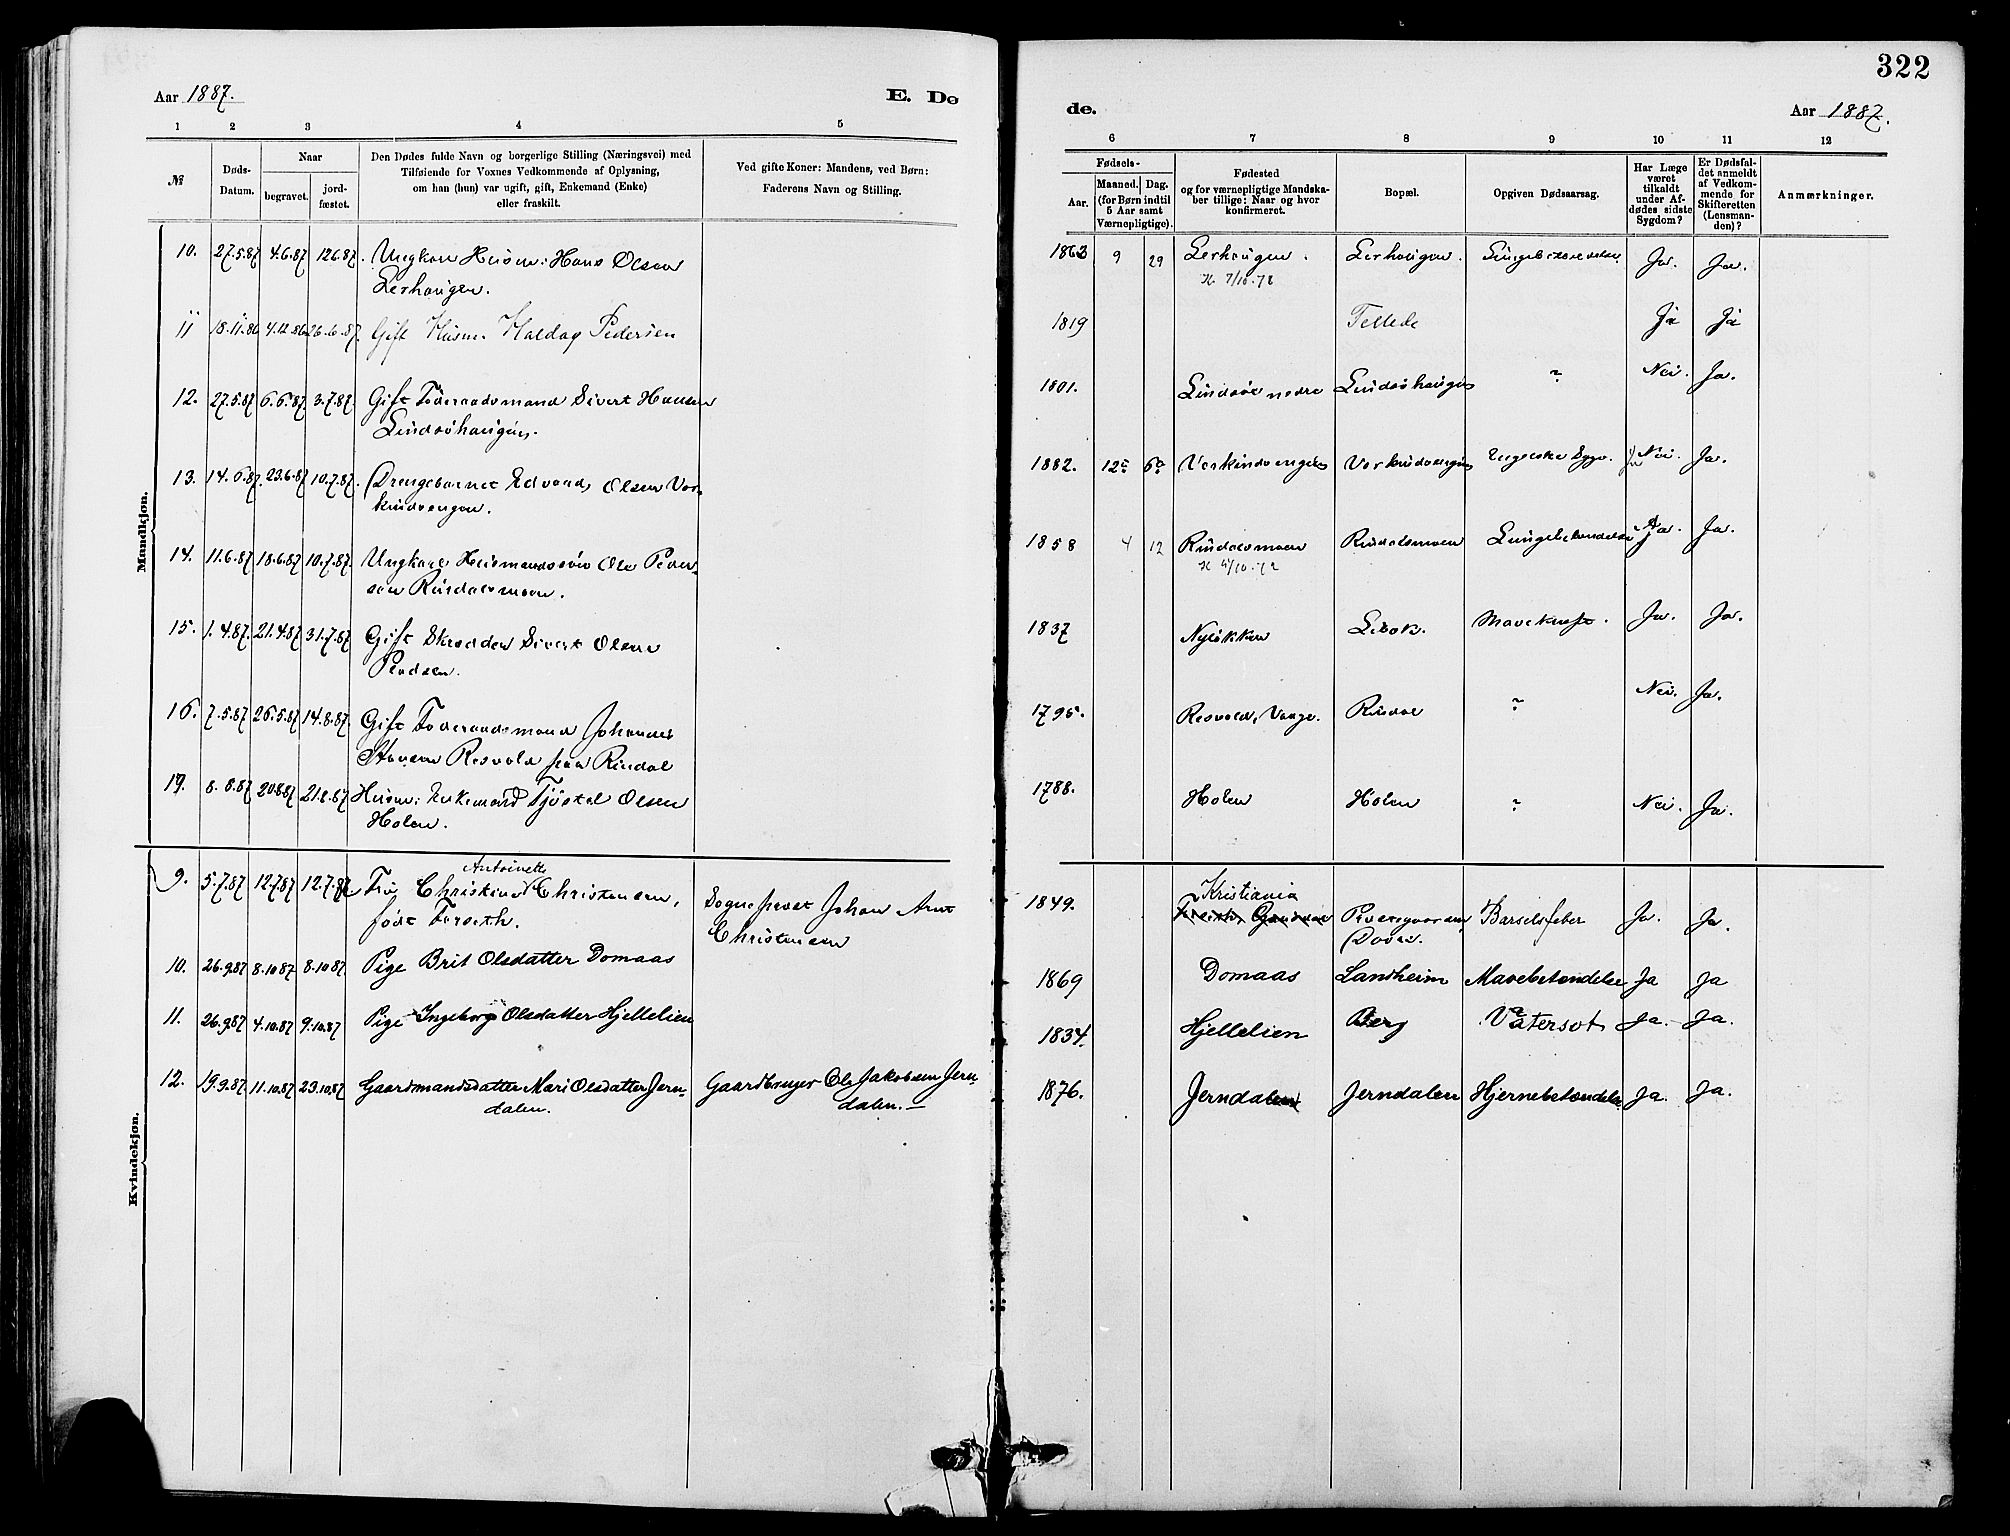 322
Aar 1887.
E. Dø
de.
Aar 1887.
1 2 3 4 5
6 7 8 9 10 11 12
№
Døds-
Datum.
Naar
begravet.
jord-
fæstet.
Den Dødes fulde Navn og borgerlige Stilling (Næringsvei) med
Tilføiende for Voxnes Vedkommende af Oplysning,
om han (hun) var ugift, gift, Enkemand (Enke)
eller fraskilt.
Ved gifte Koner: Mandens, ved Børn:
Faderens Navn og Stilling.
Fødsels-
Aar.
Maaned. Dag.
(for Børn indtil
5 Aar samt
Værnepligtige).
Fødested
og for værnepligtige Mandska-
ber tillige: Naar og hvor
konfirmeret.
Bopæl.
Opgiven Dødsaarsag.
Har Læge
været
tilkaldt
under Af-
dødes sidste
Sygdom?
Er Dødsfal-
det anmeldt
af Vedkom-
mende for
Skifteretten
(Lensman-
den)?
Anmærkninger.
Mandkjøn.
10. 27.5.87 4.6.87 12.6.87. Ungkar Husm: Hans Olsen
Lerhaugen.
1863 9 29 Lerhaugen. Lerhaugen. Ja. Ja.
K. 7/10.78
11 18.11.86 4.12.86 26.6.87. Gift Husm. Haldag Pedersen
1819 Ja Ja
12. 27.5.87 6.6.87. 3.7.87. Gift Føderaadsmand Sivert Hansen
Lindsøhaugen.
1801. Lindsøe nedre Lindsøhaugen ? Nei. Ja.
13. 14.6.87. 23.6.87 10.7.87. Drengebarnet Edvard Olsen Ver-
kindvengen.
1882. Verkindvengen Verkindvengen Engelske Syge. Nei. Ja.
14. 11.6.87 18.6.87 10.7.87. Ungkarl Husmandssøn Ole Peder-
sen Rindalsmoen.
1858 4 12 Rindalsmoen Rindalsmoen Lungebetændelse Ja. Ja.
15. 1.4.87. 21.4.87 31.7.87 Gift Skrædder Sivert Olsen
1837 Nyløkken Mavekræft. Ja. Ja.
16. 7.5.87 26.5.87 14.8.87. Gift Føderaadsmand Johannes
Resvold paa Rindal
1795. Resvold, Vaage. Rindal ? Nei. Ja.
17. 8.8.87 20.8.87 21.8.87 Husm: Enkemand Tjøstel Olsen
Holen.
1788. Holen Holen ? Nei. Ja.
Kvindekjøn.
9. 5.7.87 12.7.87 12.7.87 Fru Christine Antoinette Christensen,
født Forseth.
Sognepræst Johan Arnt
Christensen
1849. Kristiania Præstegaarden Barselsfeber Ja. Ja.
Dovre.
10. 26.9.87 8.10.87 8.10.87 Pige Brit Olsdatter Domaas
1869 Domaas Landheim Mavebetændelse Ja Ja
11. 26.9.87 4.10.87 9.10.87 Pige Ingeborg Olsdatter Hjellelien
1834. Hjellelien Berg Vatersot Ja. Ja.
12. 19.9.87 11.10.87 23.10.87 Gaardmandsdatter Mari Olsdatter Jern-
dalen.
Gaardbruger Ole Jakobsen Jern-
dalen. —
1876. Jerndalen Jerndalen Hjernebetændelse Ja. Ja.